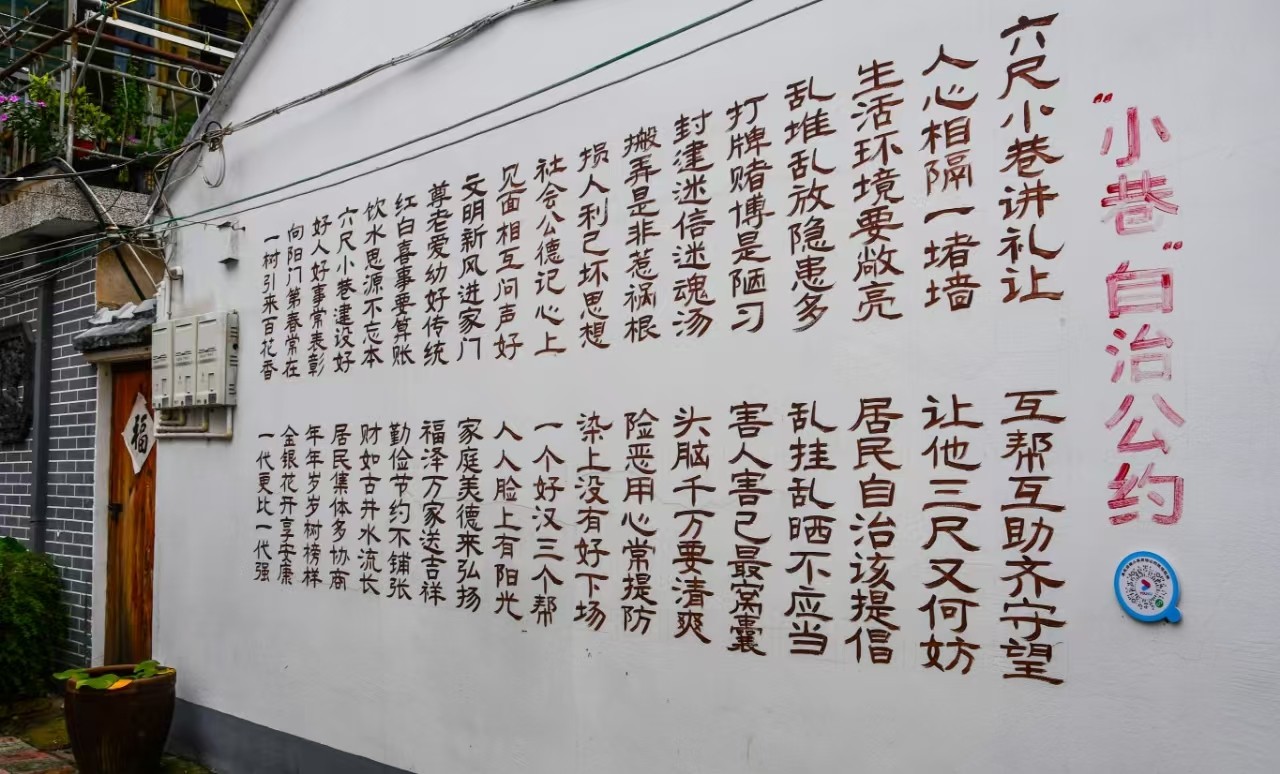 “小巷”自治公约
六尺小巷讲礼让
互帮互助齐守望
人心相隔一堵墙
让他三尺又何妨
生活环境要敞亮
居民自治该提倡
乱堆乱放隐患多
乱挂乱晒不应当
打牌赌博是陋习
害人害己最窝囊
封建迷信迷魂汤
头脑千万要清爽
搬弄是非惹祸根
险恶用心常提防
损人利己坏思想
染上没有好下场
社会公德记心上
一个好汉三个帮
见面相互问声好
人人脸上有阳光
文明新风进家门
家庭美德来弘扬
尊老爱幼好传统
福泽万家送吉祥
红白喜事要算账
勤俭节约不铺张
饮水思源不忘本
财如古井水流长
六尺小巷建设好
居民集体多协商
好人好事常表彰
年年岁岁树榜样
向阳门第春常在
金银花开享安康
一树引来百花香
一代更比一代强
福